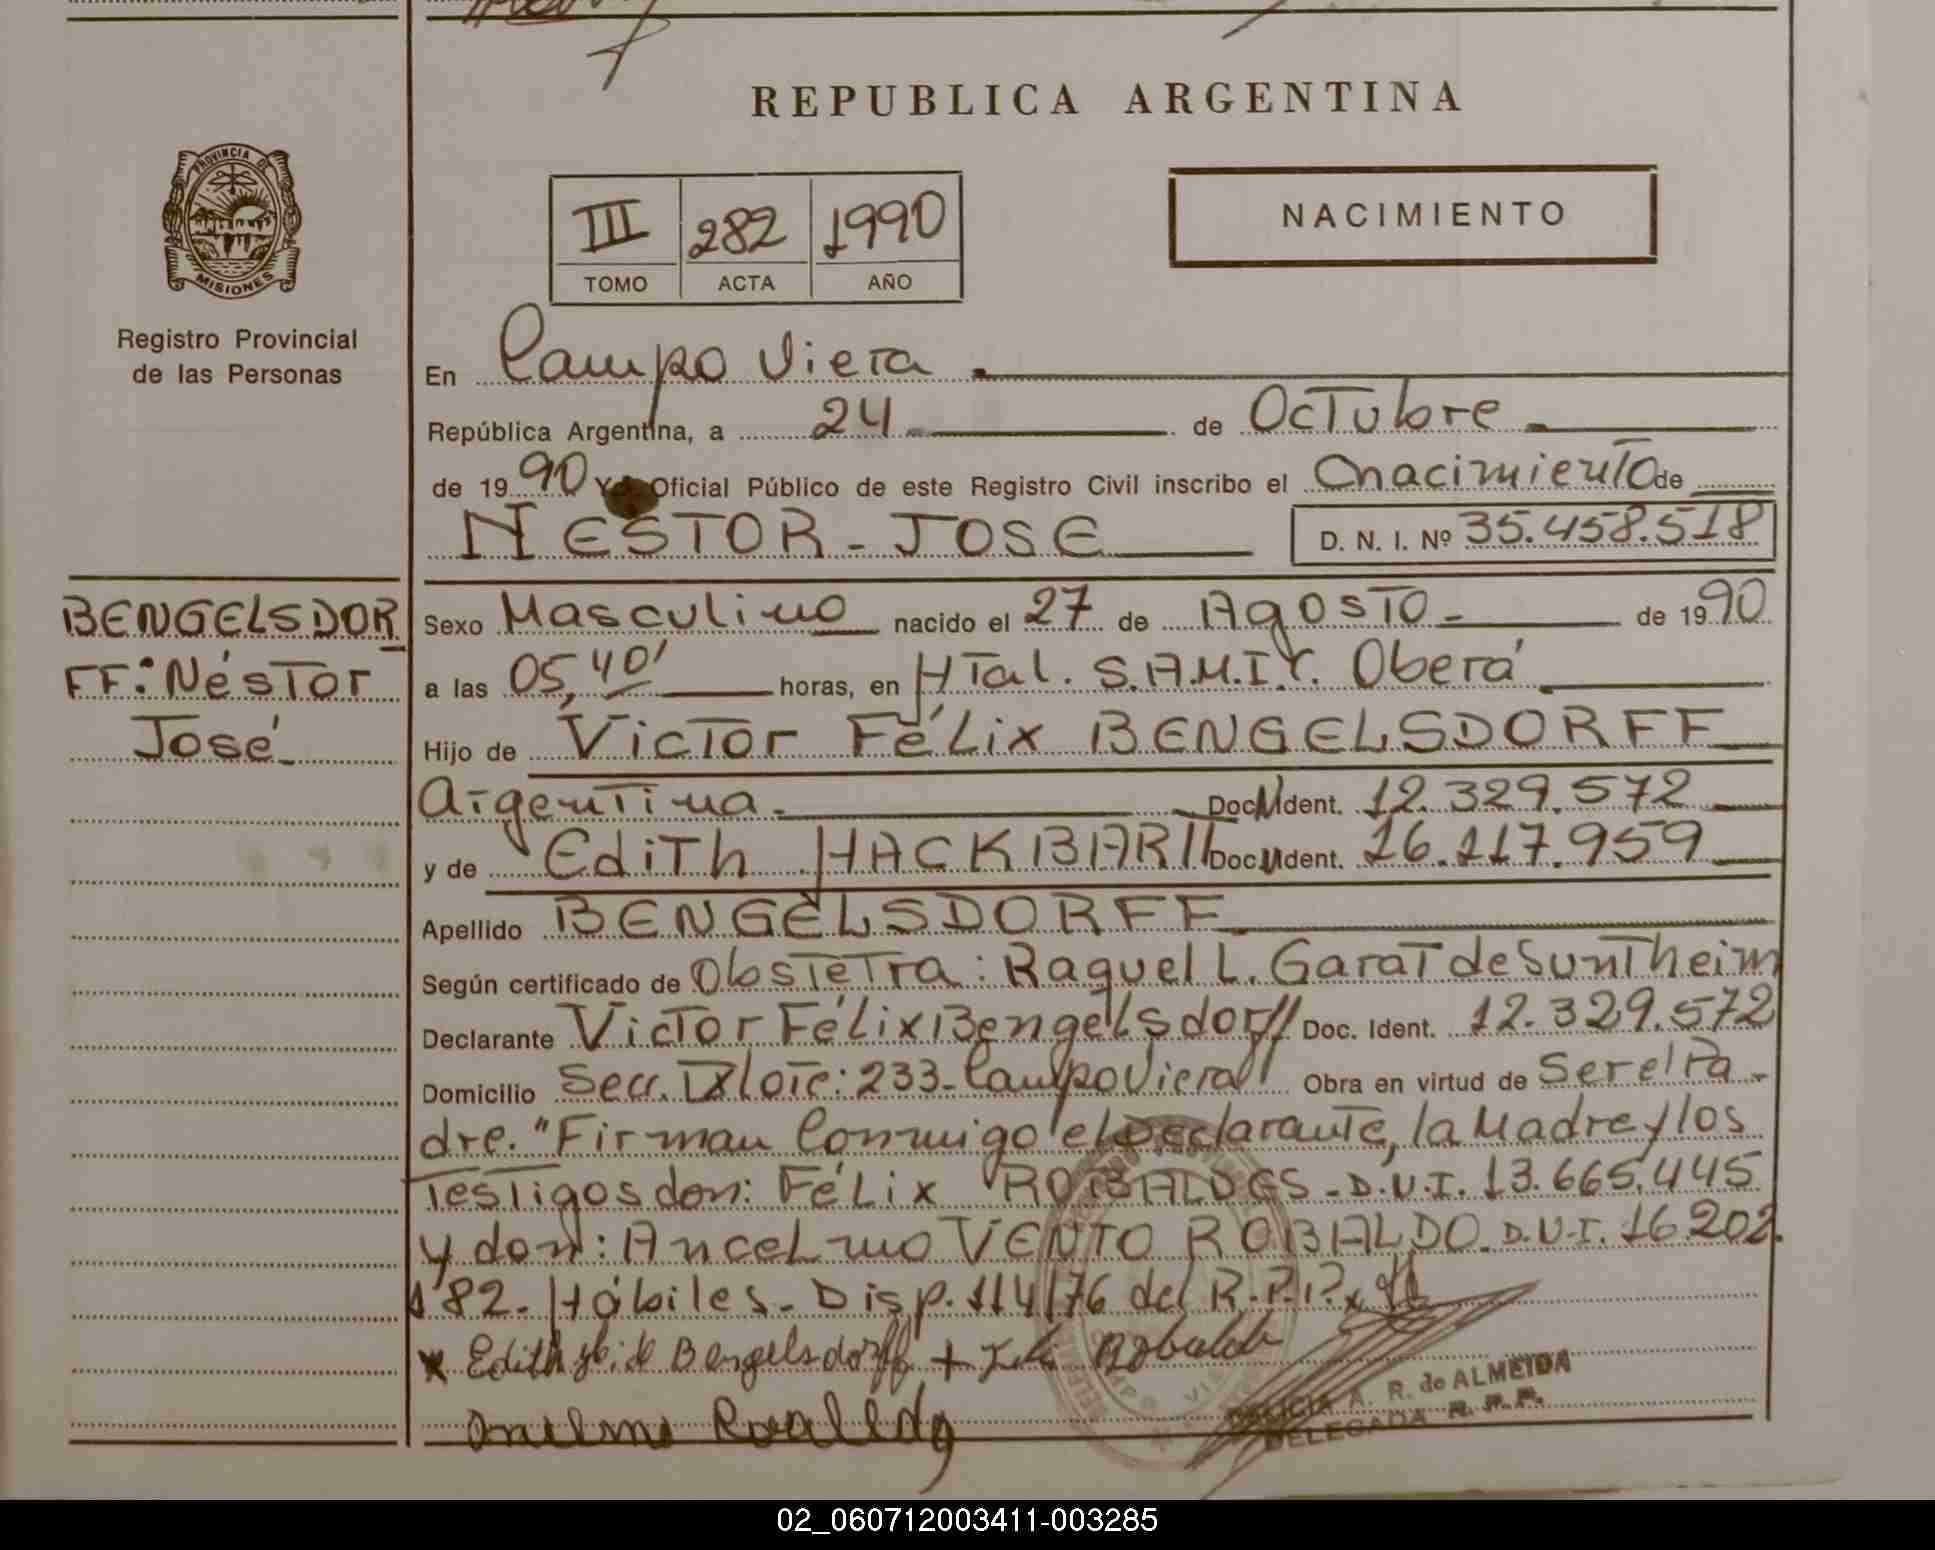 REPUBLICA ARGENTINA
PROVINCIA DE
MISIONES
Registro Provincial
de las Personas
III 282 1990
TOMO ACTA AÑO
NACIMIENTO
En Campo Viera
República Argentina, a 24 de Octubre
de 1990 Yo Oficial Público de este Registro Civil inscribo el nacimiento de
NESTOR - JOSE D. N. I. Nº 35.458.518
BENGELSDOR
FF: Néstor
José
Sexo Masculino nacido el 27 de Agosto de 1990
a las 05,40' horas, en HTal. S.A.M.I.C. Oberá
Hijo de Victor Félix BENGELSDORFF
Argentina. Doc. Ident. 12.329.572
y de Edith HACKBARTH Doc. Ident. 16.117.959
Apellido BENGELSDORFF
Según certificado de Obstetra: Raquel L. Garat de Suntheim
Declarante Victor Félix Bengelsdorff Doc. Ident. 12.329.572
Domicilio Secc. IX Lote: 233- Campo Viera Obra en virtud de Ser el Pa-
dre. "Firman Conmigo el Declarante, la Madre y los
Testigos don: Félix ROBALDGS - D.N.I. 13.665.445
y don: Ancelmo VENTO ROBALDO. D.N.I. 16.202.
182. Hábiles - Disp. 114/76 del R.P.P.
x Edith H. de Bengelsdorff + Robaldo
A. R. de ALMEIDA
DELEGADA R. P. P.
02_060712003411-003285